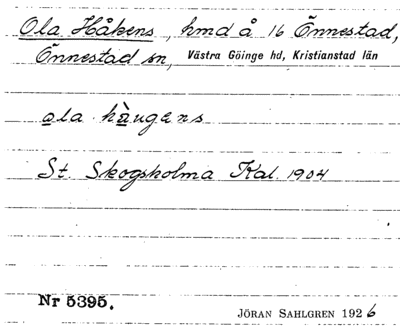 Ola Håkens, hmd å 16 Önnestad,
Önnestad sn, Västra Göinge hd, Kristianstad län
ola hàugens
St. Skogsholma Kal 1904
Nr 5395.
JÖRAN SAHLGREN 1926